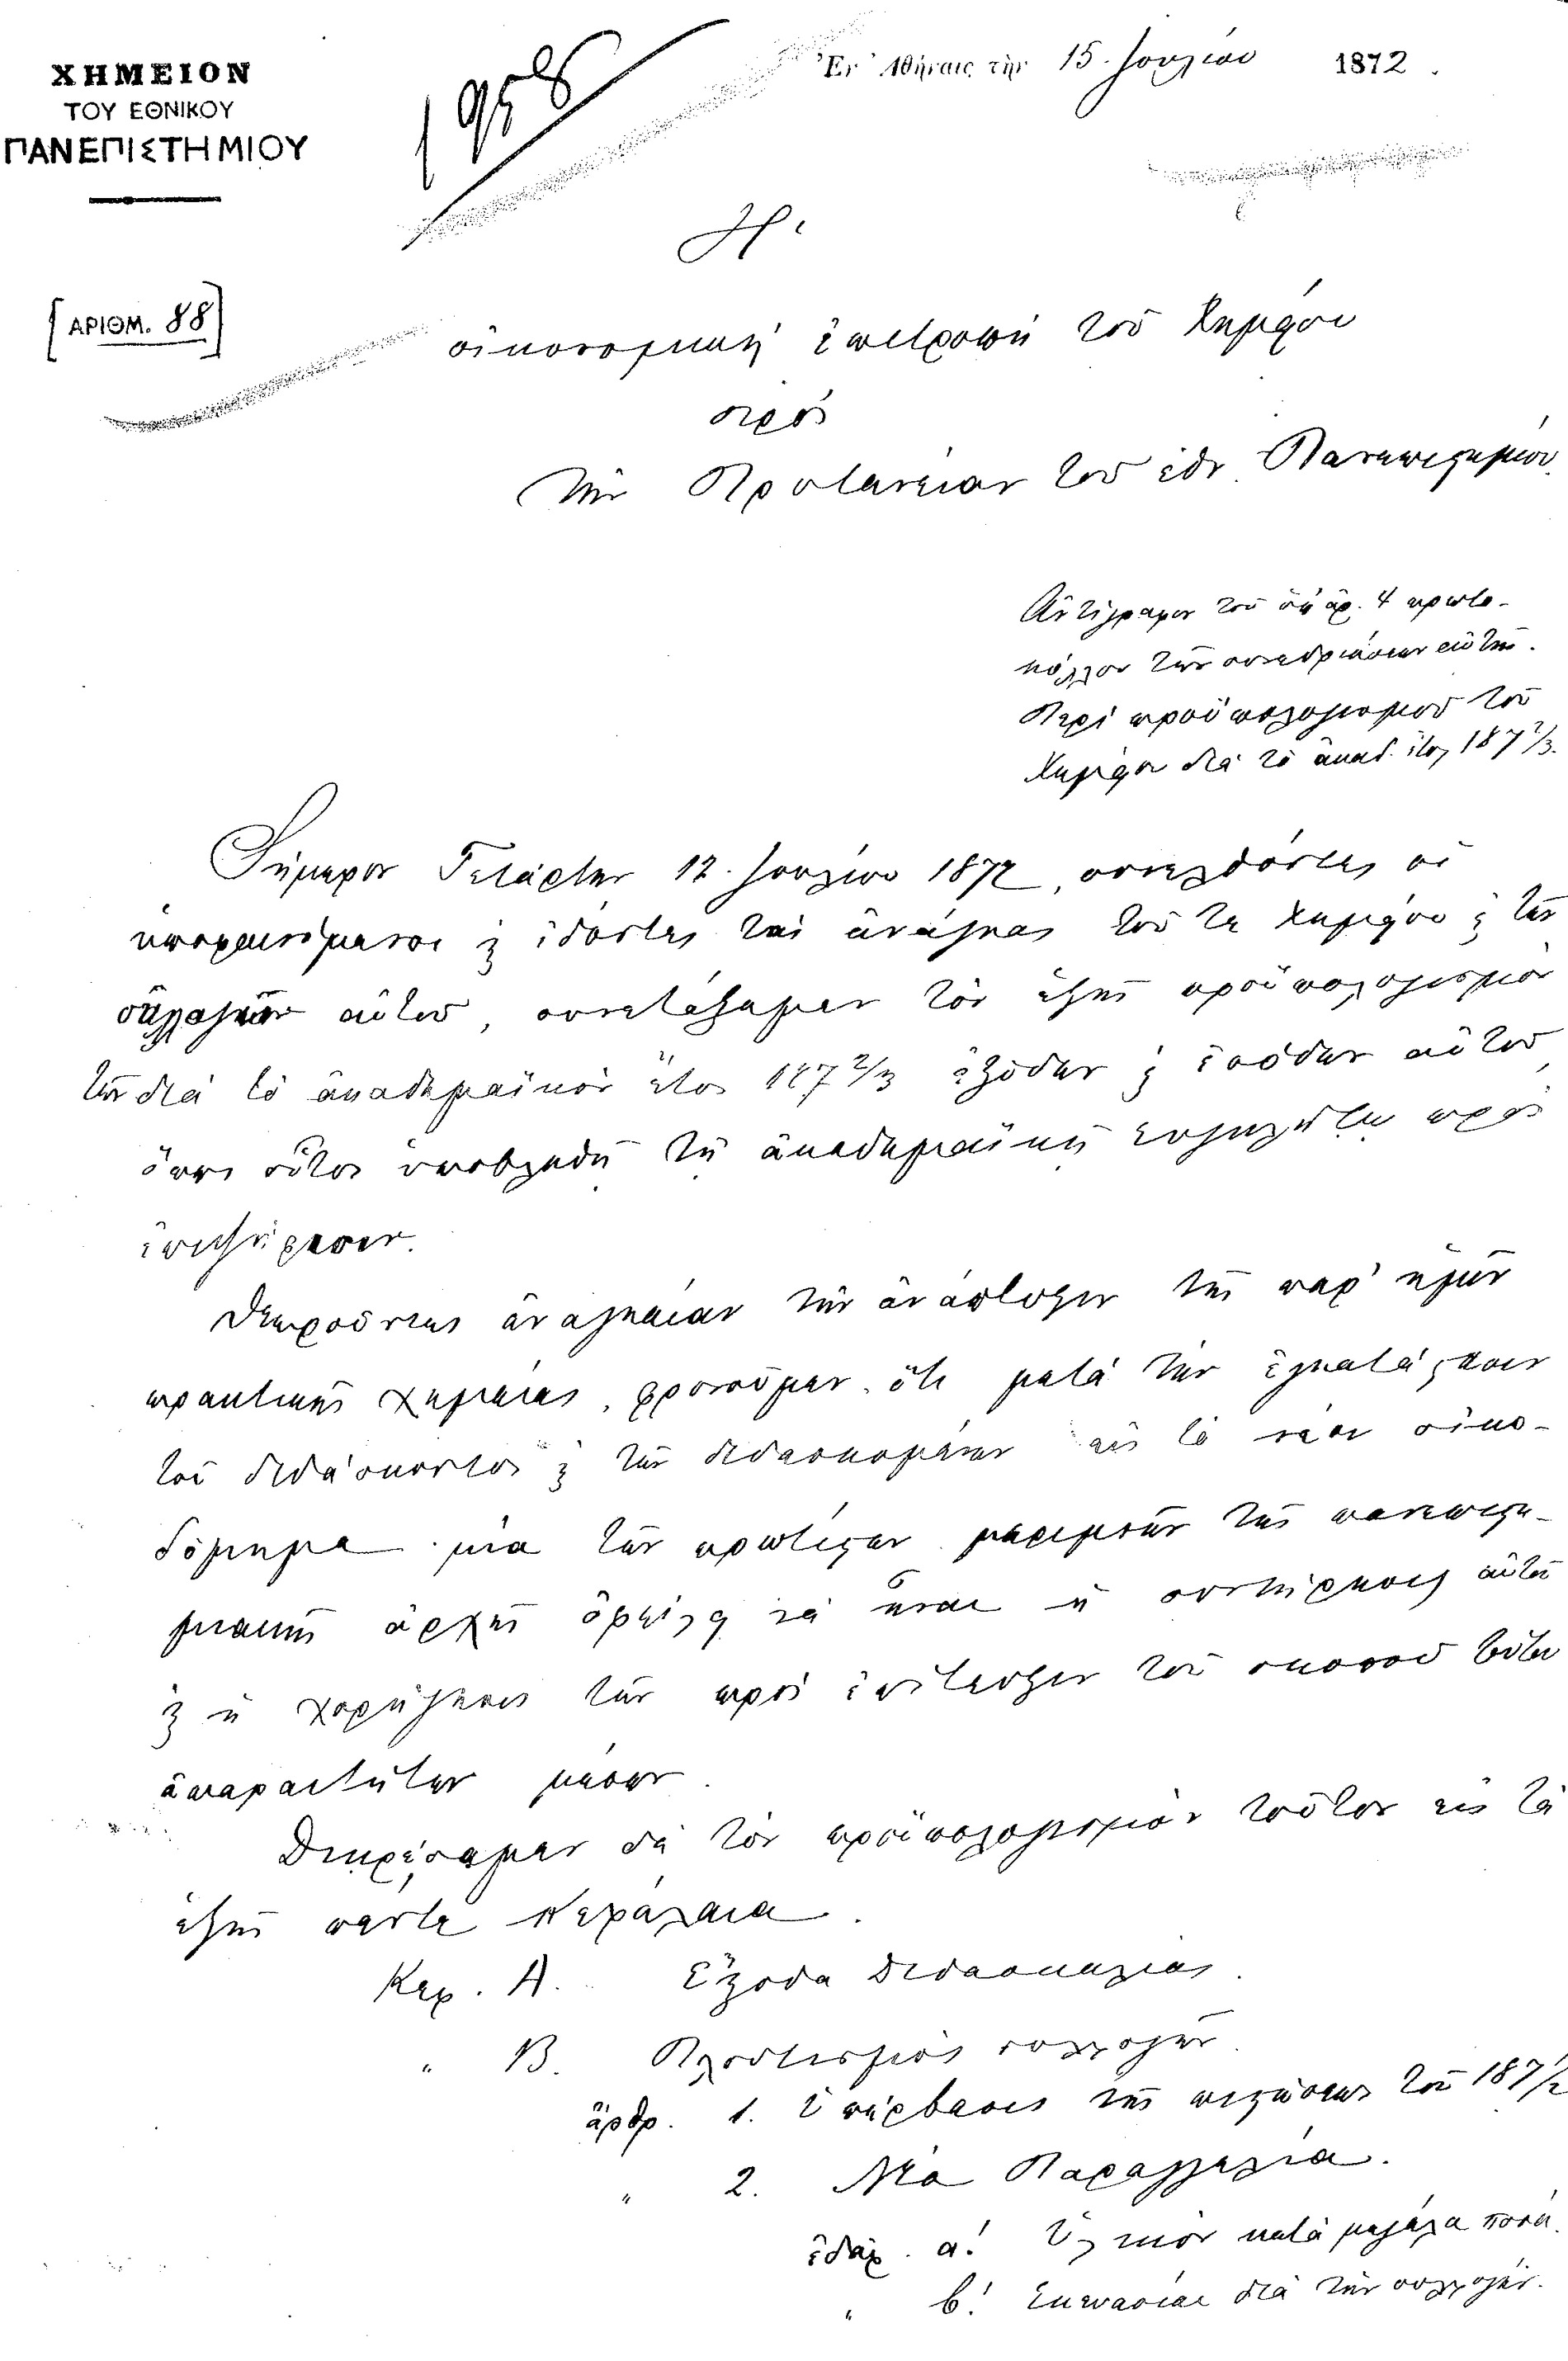 ΧΗΜΕΙΟΝ
ΤΟΥ ΕΘΝΙΚΟΥ
ΠΑΝΕΠΙΣΤΗΜΙΟΥ
Ἐν Ἀθήναις τὴν 15 Ἰουλίου 1872.
[ΑΡΙΘΜ. 88]
Ἡ
οἰκονομικὴ ἐπιτροπὴ τοῦ Χημείου
πρὸς
τὴν Πρυτανείαν τοῦ ἐθν. Πανεπιστημίου.
Ἀντίγραφον τοῦ ὑπ' ἀρ. 4 πρωτο-
κόλλου τῶν συνεδριάσεων αὐτῆς.
Περὶ προϋπολογισμοῦ τοῦ
Χημείου διὰ τὸ ἀκαδ. ἔτος 187 2/3.
Σήμερον Τετάρτην 12 Ἰουλίου 1872, συνελθόντες οἱ
ὑποφαινόμενοι ϗ ἰδόντες τὰς ἀνάγκας τοῦ τε Χημείου ϗ τῶν
συλλογῶν αὐτοῦ, συνετάξαμεν τὸν ἑξῆς προϋπολογισμὸν
τῶν διὰ τὸ ἀκαδημαϊκὸν ἔτος 187 2/3 ἐξόδων ϗ ἐσόδων αὐτοῦ,
ὅπως οὗτος ὑποβληθῇ τῇ ἀκαδημαϊκῇ Συγκλήτῳ πρὸς
ἐπιψήφισιν.
Θεωροῦντες ἀναγκαίαν τὴν ἀνάπτυξιν τῆς παρ' ἡμῖν
πρακτικῆς χημείας, φρονοῦμεν ὅτι μετὰ τὴν ἐγκατάστασιν
τοῦ διδάσκοντος ϗ τῶν διδασκομένων εἰς τὸ νέον οἰκο-
δόμημα μία τῶν πρωτίστων μεριμνῶν τῆς πανεπιστη-
μιακῆς ἀρχῆς ὀφείλει νὰ ἦναι ἡ συντήρησις αὐτοῦ
ϗ ἡ χορήγησις τῶν πρὸς ἐπίτευξιν τοῦ σκοποῦ τούτου
ἀπαραιτήτων μέσων.
Διῃρέσαμεν δὲ τὸν προϋπολογισμὸν τοῦτον εἰς τὰ
ἑξῆς πέντε Κεφάλαια.
Κεφ. Α. Ἔξοδα Διδασκαλίας.
" Β. Πλουτισμὸς συλλογῶν.
ἄρθρ. 1. Ὑπέρβασις τῆς πιστώσεως τοῦ 187 1/2
" 2. Νέα Παραγγελία.
ἐδάφ. α'. Ὑλικὸν κατὰ μεγάλα ποσά.
" β'. Σκευασίαι διὰ τὴν συλλογήν.